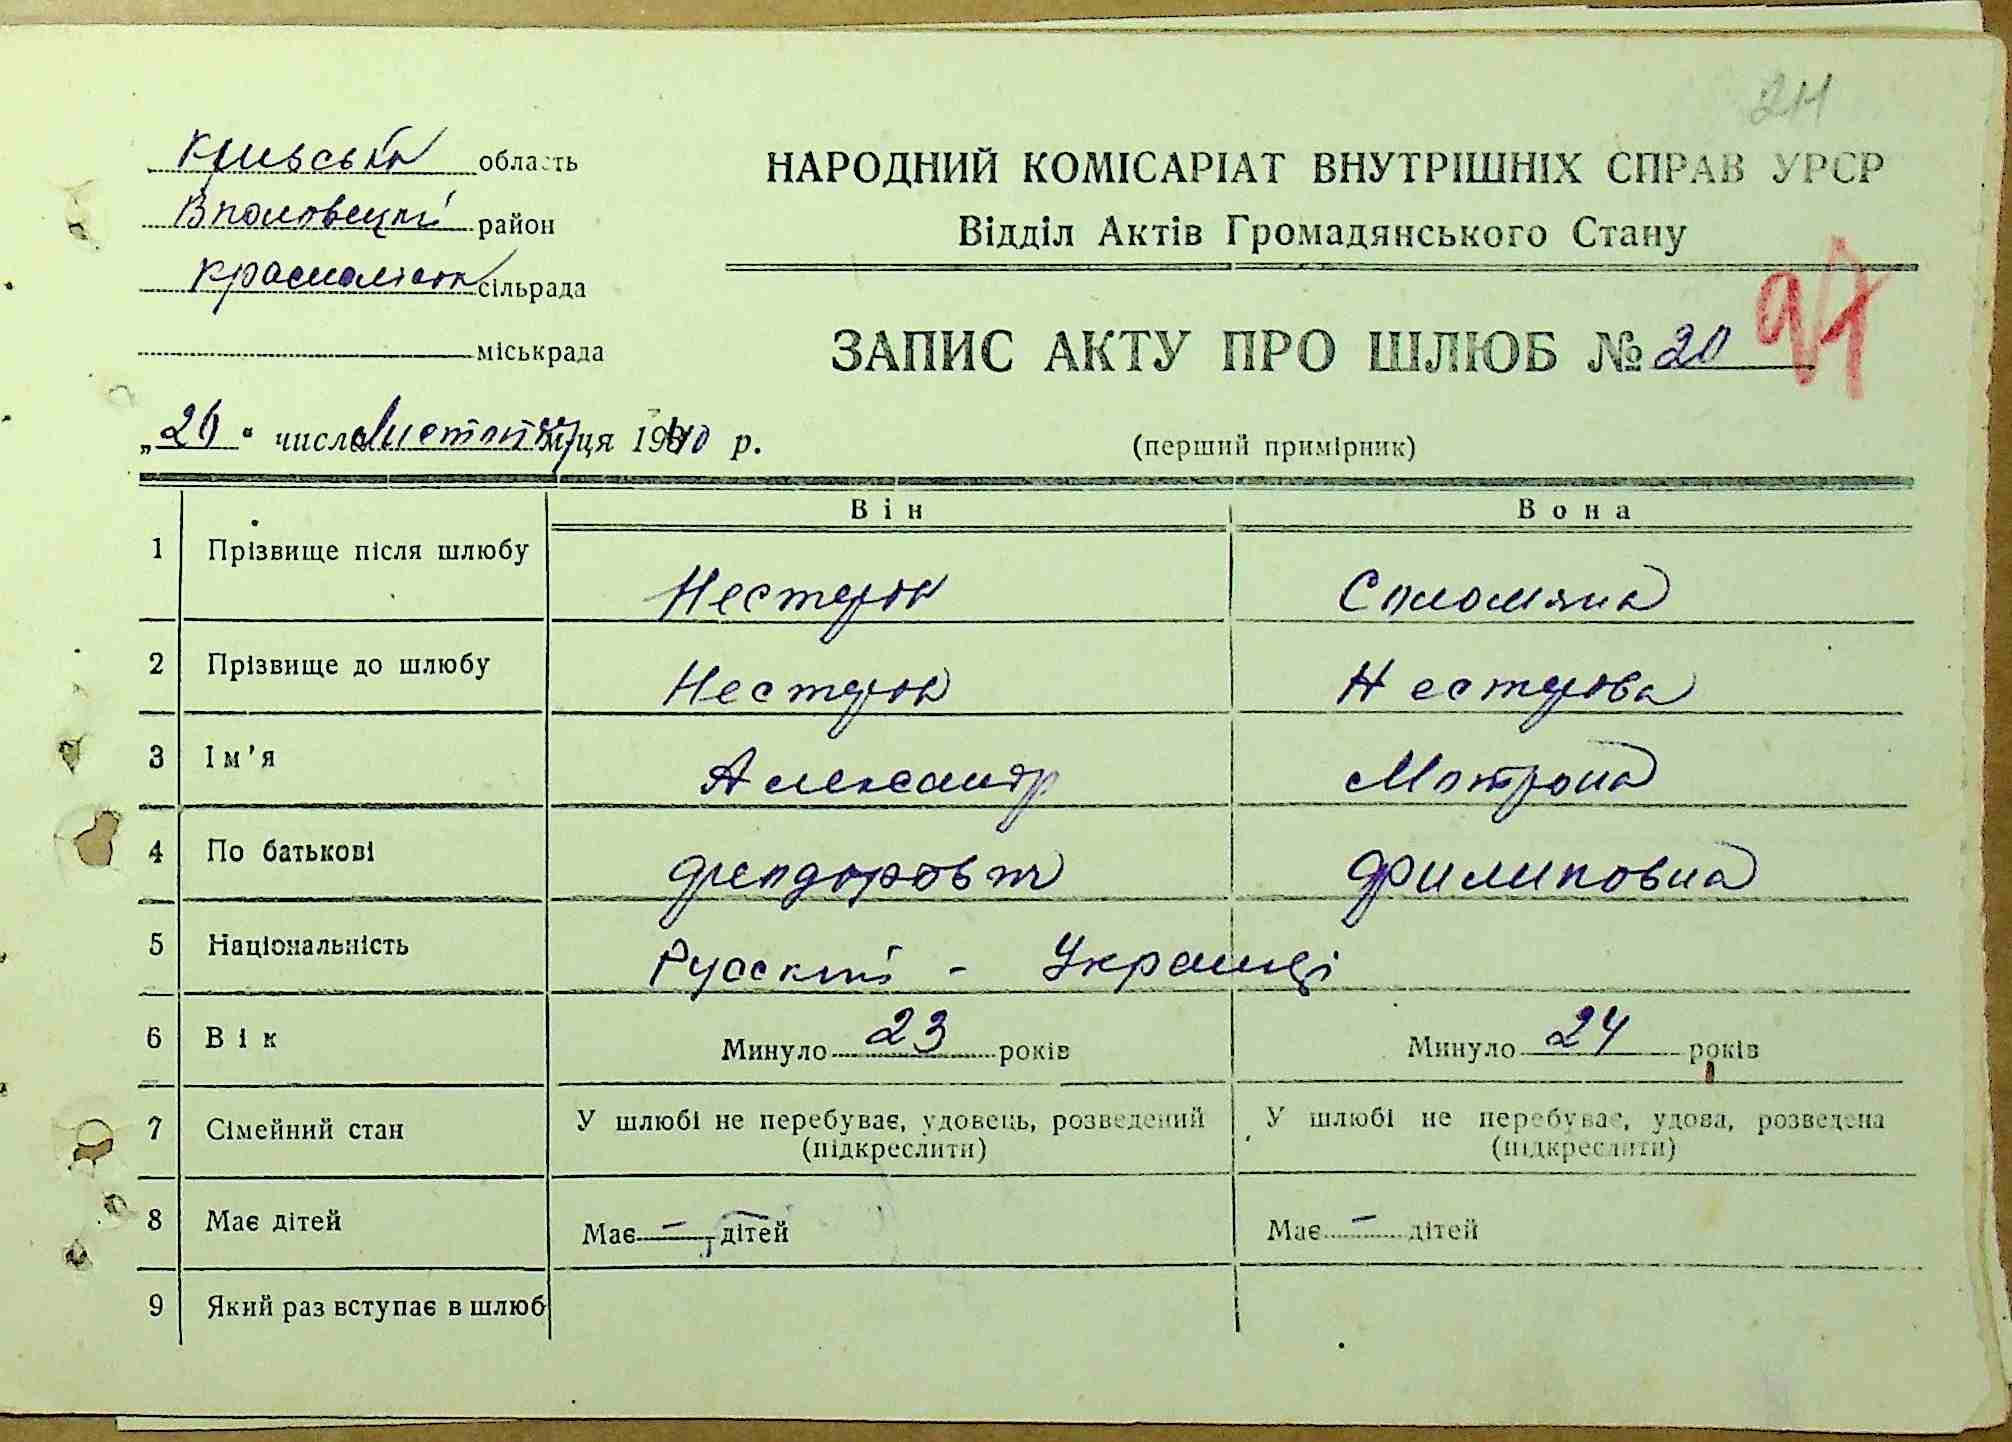 211
Київська область
В половецкі район
Красналіська сільрада
міськрада
НАРОДНИЙ КОМІСАРІАТ ВНУТРІШНІХ СПРАВ УРСР
Відділ Актів Громадянського Стану
ЗАПИС АКТУ ПРО ШЛЮБ № 20
97
„26“ числа Листопад м-ця 1940 р.
(перший примірник)
Він Вона
1 Прізвище після шлюбу Нестеров Саломяна
2 Прізвище до шлюбу Нестеров Нестерова
3 Ім’я Александр Мотрона
4 По батькові Феодорович Филиповна
5 Національність Русский - Украінці
6 Вік Минуло 23 років Минуло 24 років
7 Сімейний стан У шлюбі не перебуває, удовець, розведений У шлюбі не перебуває, удова, розведена
(підкреслити) (підкреслити)
8 Має дітей Має — дітей Має — дітей
9 Який раз вступає в шлюб